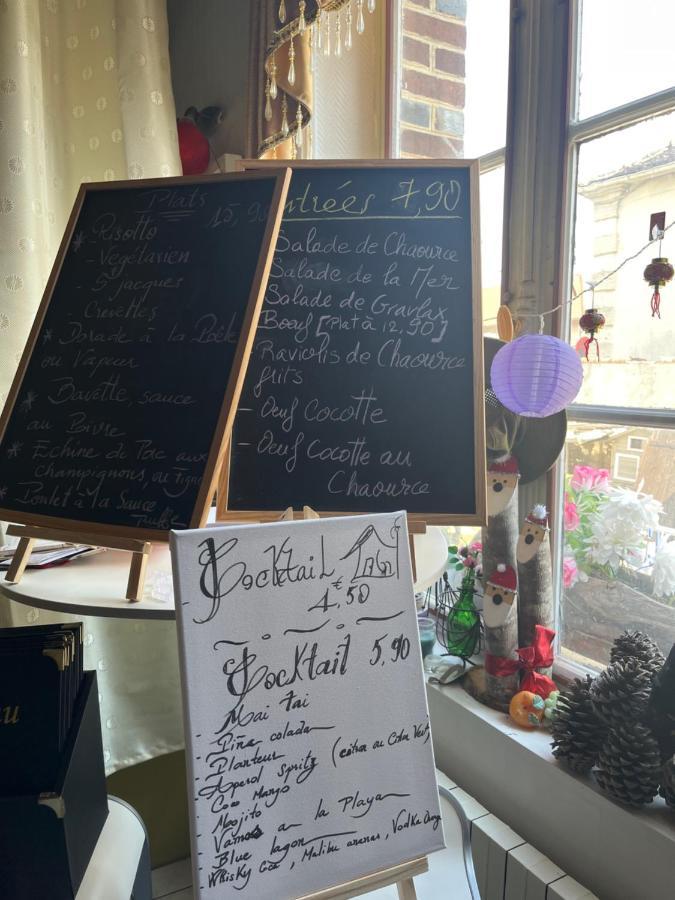 Plats
15,9
* Risotto
- Vegetarien
- S' jacques
- Crevettes
* Dorade à la Poêle
ou Vapeur
* Bavette, sauce
au Poivre
* Echine de Porc aux
champignons, ou
* Poulet à la Sauce
Truffe
ntrées 7,90
Salade de Chaource
Salade de la Mer
Salade de Gravlax
Boeuf [Plat à 12,90]
Raviolis de Chaource
frits
- Oeuf Cocotte
- Oeuf Cocotte au
Chaource
Cocktail
4€,50
Cocktail 5,90
- Mai Tai
- Piña colada
- Planteur
- Aperol Spritz (citron ou Citron Vert)
- Coco Mango
- Mojito
- Vamos a la Playa
- Blue lagon
- Whisky Coca, Malibu ananas, Vodka Orang
u